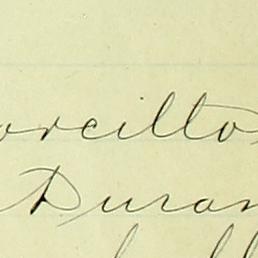 orcillo
Duran